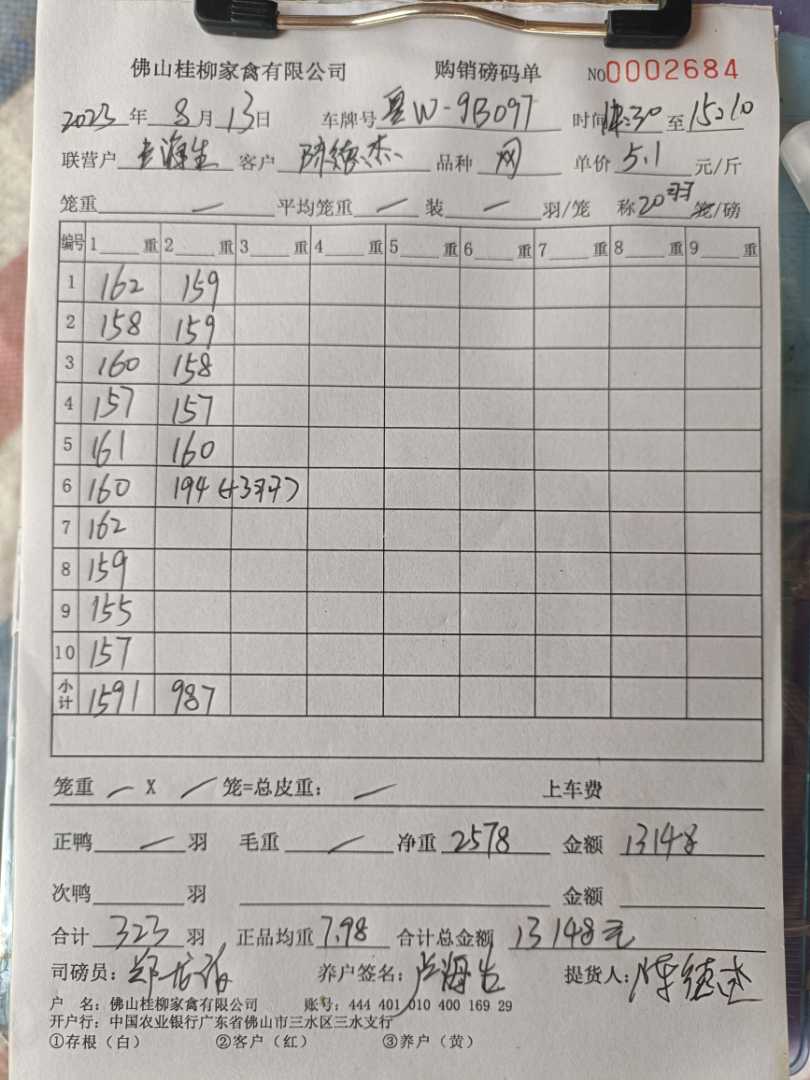 佛山桂柳家禽有限公司 购销磅码单 NO0002684
2023年 8月13日 车牌号 粤W-9B097 时间 14:30 至 15:10
联营户 卢海生 客户 陈德杰 品种 网 单价 5.1 元/斤
笼重 — 平均笼重 — 装 — 羽/笼 称 20羽 笼/磅
编号 1 重 2 重 3 重 4 重 5 重 6 重 7 重 8 重 9 重
1 162 159
2 158 159
3 160 158
4 157 157
5 161 160
6 160 194 (+3羽)
7 162
8 159
9 155
10 157
小计 1591 987
笼重 — X — 笼=总皮重: — 上车费
正鸭 — 羽 毛重 — 净重 2578 金额 13148
次鸭 羽 金额
合计 323 羽 正品均重 7.98 合计总金额 13148元
司磅员: 养户签名: 卢海生 提货人: 陈德杰
户 名: 佛山桂柳家禽有限公司 账号: 444 401 010 400 169 29
开户行: 中国农业银行广东省佛山市三水区三水支行
①存根（白） ②客户（红） ③养户（黄）